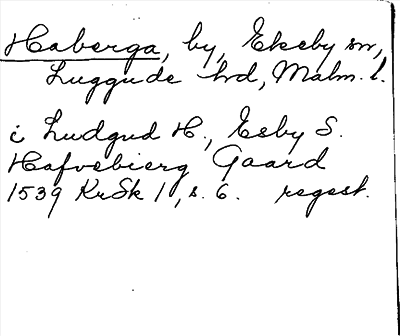 Haberga, by, Ekeby sn,
Luggude hrd, Malm. l.
i Ludgud H., Eeby S.
Hafvebierg Gaard
1539 KrSk 1, s. 6. regest.